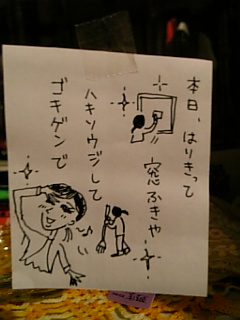 本日、はりきって
窓ふきや
ハキソウジして
ゴキゲンで